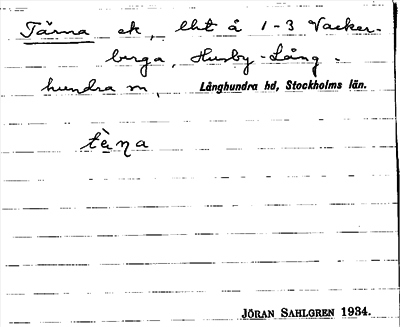 Tärna ek, lht å 1-3 Vacker-
berga, Husby-Lång-
hundra sn, Långhundra hd, Stockholms län.
tὲ̀ηa
JÖRAN SAHLGREN 1934.